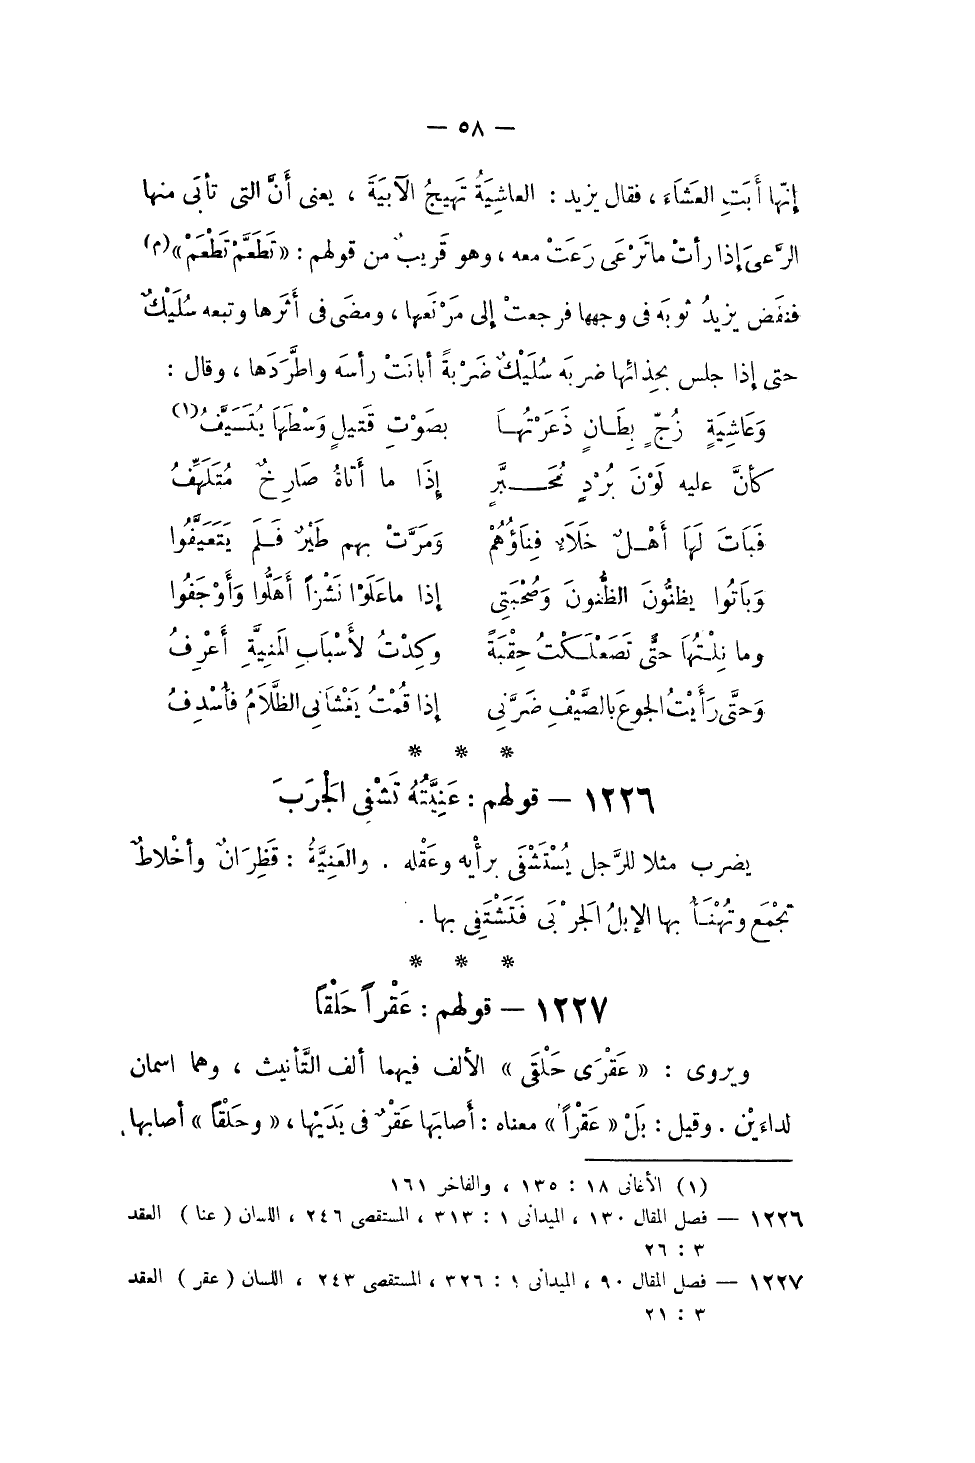 — ٥٨ —
إنّها أَبَتِ العَشاَء ، فقال يزيد : العاشِيَةُ تَهيجُ الآبِيَةَ ، يعنى أنَّ التى تأبَى منها
الرَّعىَ إذا رأتْ ما تَرْعَى رَعَتْ معه ، وهو قَريبٌ من قولهم : « تَطَعَّمْ تَطْعَمْ » (م)
فنفَض يزيدُ ثوبَه فى وجهها فرجعتْ إلى مَرْتَعها ، ومضَى فى أثَرها وتبعه سُلَيْكٌ
حتى إذا جلس بحِذائها ضربَه سُلَيْكٌ ضَرْبةً أبانَتْ رأسَه واطَّرَدَها ، وقال :
وَعَاشِيَةٍ زُجٍّ بِطَـانٍ ذَعَرْتُهـا بصَوْتِ قَتيلٍ وَسْطَهَا يُتَسَيَّفُ (١)
كأنَّ عليه لَوْنَ بُرْدٍ مُحَـــبَّرٍ إذَا ما أتَاهُ صَارِخٌ مُتَلَهِّفُ
فَبَاتَ لَهَا أَهْـلٌ خَلَاء فِنَاؤُهُمْ وَمَرَّتْ بهم طَيْرٌ فَـلَم يَتَعَيَّفُوا
وَبَاتُوا يظنُّونَ الظُّنونَ وَصُحْبَتِى إذا ماعَلَوْا نَشْزاً أهَلُّوا وَأَوْجَفُوا
وما نِلْـتُهَا حتَّى تَصَعْلَـكْتُ حِقْبَةً وكِدْتُ لأَسْبَابِ المَنِيَّةِ أَعْرِفُ
وَحتَّى رَأَيْتُ الجوعَ بالصَّيْفِ ضَرَّنِى إذا قُمْتُ يَغْشَانِى الظَّلَامُ فأُسْدِفُ
* * *
١٢٢٦ — قولهم : عَنِيَّتُهُ تَشْفِى الجَرَبَ
يضرب مثلا للرَّجل يُسْتَشْفَى برأْيه وعَقْله . والعَنِيَّةُ : قَطِرَانٌ وأخْلاطٌ
تجْمَع وتُهْنَـأُ بها الإبلُ الجَرْبَى فَتَشْتَفِى بها .
* * *
١٢٢٧ — قولهم : عَقْراً حَلْقاً
ويروى : « عَقْرَى حَلْقَى » الألف فيهما ألف التَّأنيث ، وهما اسمان
لداءيْن . وقيل : بَلْ « عَقْراً » معناه : أَصابَها عَقْرٌ فى بَدَنِها ، « وحَلْقاً » أصابها
(١) الأغانى ١٨ : ١٣٥ ، والفاخر ١٦١
١٢٢٦ — فصل المقال ١٣٠ ، الميدانى ١ : ٣١٣ ، المستقصى ٢٤٦ ، اللسان ( عنا ) العقد
٣ : ٢٦
١٢٢٧ — فصل المقال ٩٠ ، الميدانى ١ : ٣٢٦ ، المستقصى ٢٤٣ ، اللسان ( عقر ) العقد
٣ : ٢١